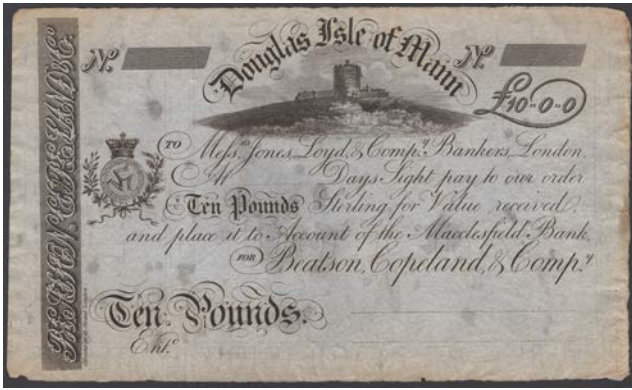 Douglas Isle of Mann
Nº Nº
£10-0-0
TO Mess.rs Jones, Loyd, & Comp.y Bankers, London.
Days Sight pay to our order
Ten Pounds Stirling for Value received.
and place it to Account of the Macclesfield Bank,
FOR Beatson, Copeland, & Comp.y
Ten Pounds.
Ent.d